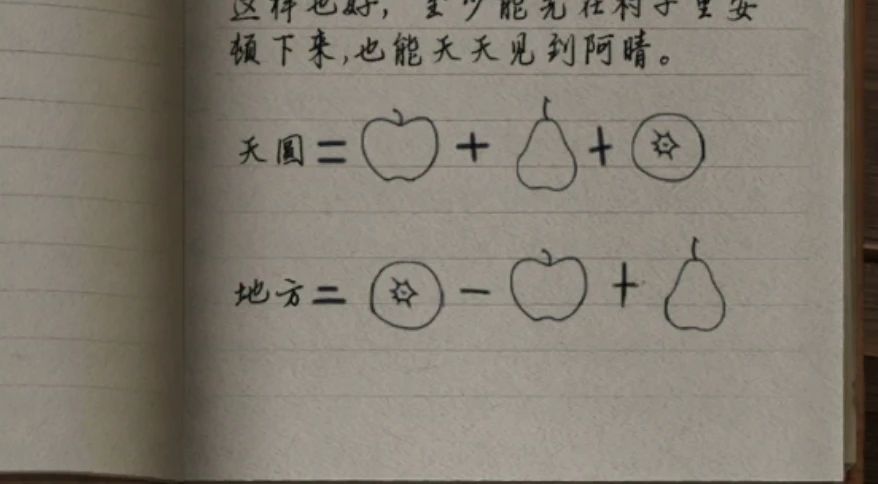 这样也好，至少能先在村子里安
顿下来，也能天天见到阿晴。
天圆＝ + +
地方＝ － +